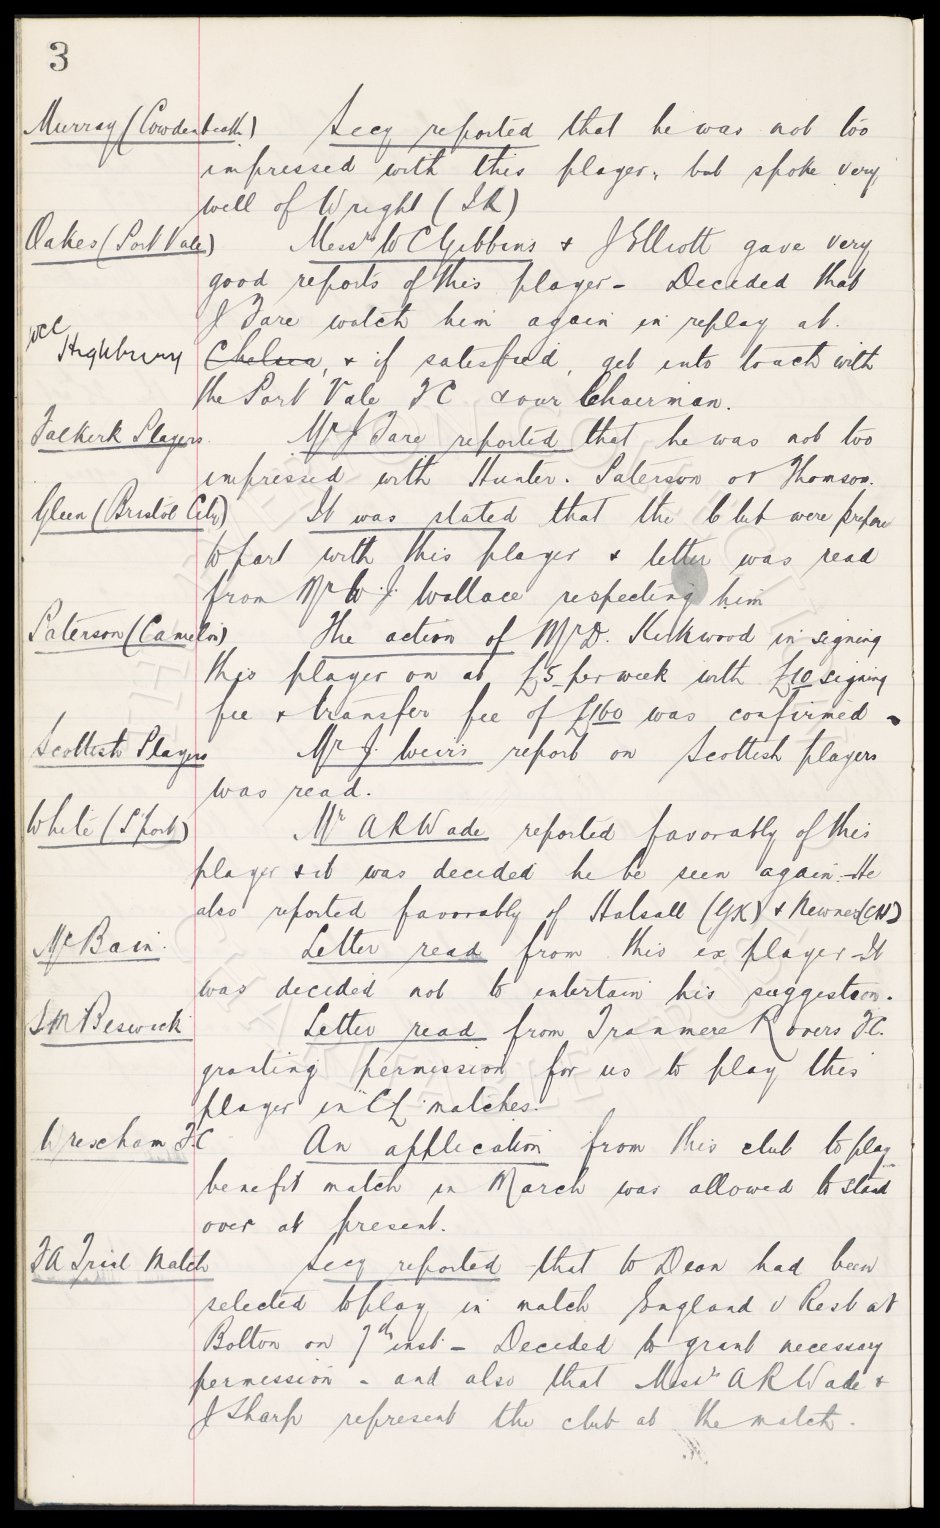 3
Murray (Cowdenbeath) Secy reported that he was not too
impressed with this player, but spoke very
well of Wright (IR)
Oakes (Port Vale) Messrs W C Gibbins & J Elliott gave very
good reports of this player - Decided that
J Fare watch him again in replay at
WCC Highbury Chelsea, & if satisfied, get into touch with
the Port Vale FC & our Chairman.
Falkirk Players. Mr J Fare reported that he was not too
impressed with Hunter. Paterson or Thomson.
Glen (Bristol City) It was stated that the Club were prepare
to part with this player & letter was read
from Mr W. J. Wallace respecting him
Paterson (Camelon) The action of Mr D. Kirkwood in signing
this player on at £5 per week with £10 signing
fee & transfer fee of £160 was confirmed -
Scottish Players Mr J. Weirs report on Scottish players
was read.
White (S'port) Mr A R Wade reported favorably of this
player & it was decided he be seen again - He
also reported favorably of Halsall (GK) & Newnes (CH)
McBain. Letter read from this ex player - It
was decided not to entertain his suggestion.
Beswick Letter read from Tranmere Rovers FC.
granting permission for us to play this
player in "CL" matches.
Wrexham FC An application from this club to play
benefit match in March was allowed to stand
over at present.
FA Trial Match Secy reported that W Dean had been
selected to play in match England v Rest at
Bolton on 7th inst - Decided to grant necessary
permission - and also that Messrs A R Wade &
J Sharp represent the club at the match.